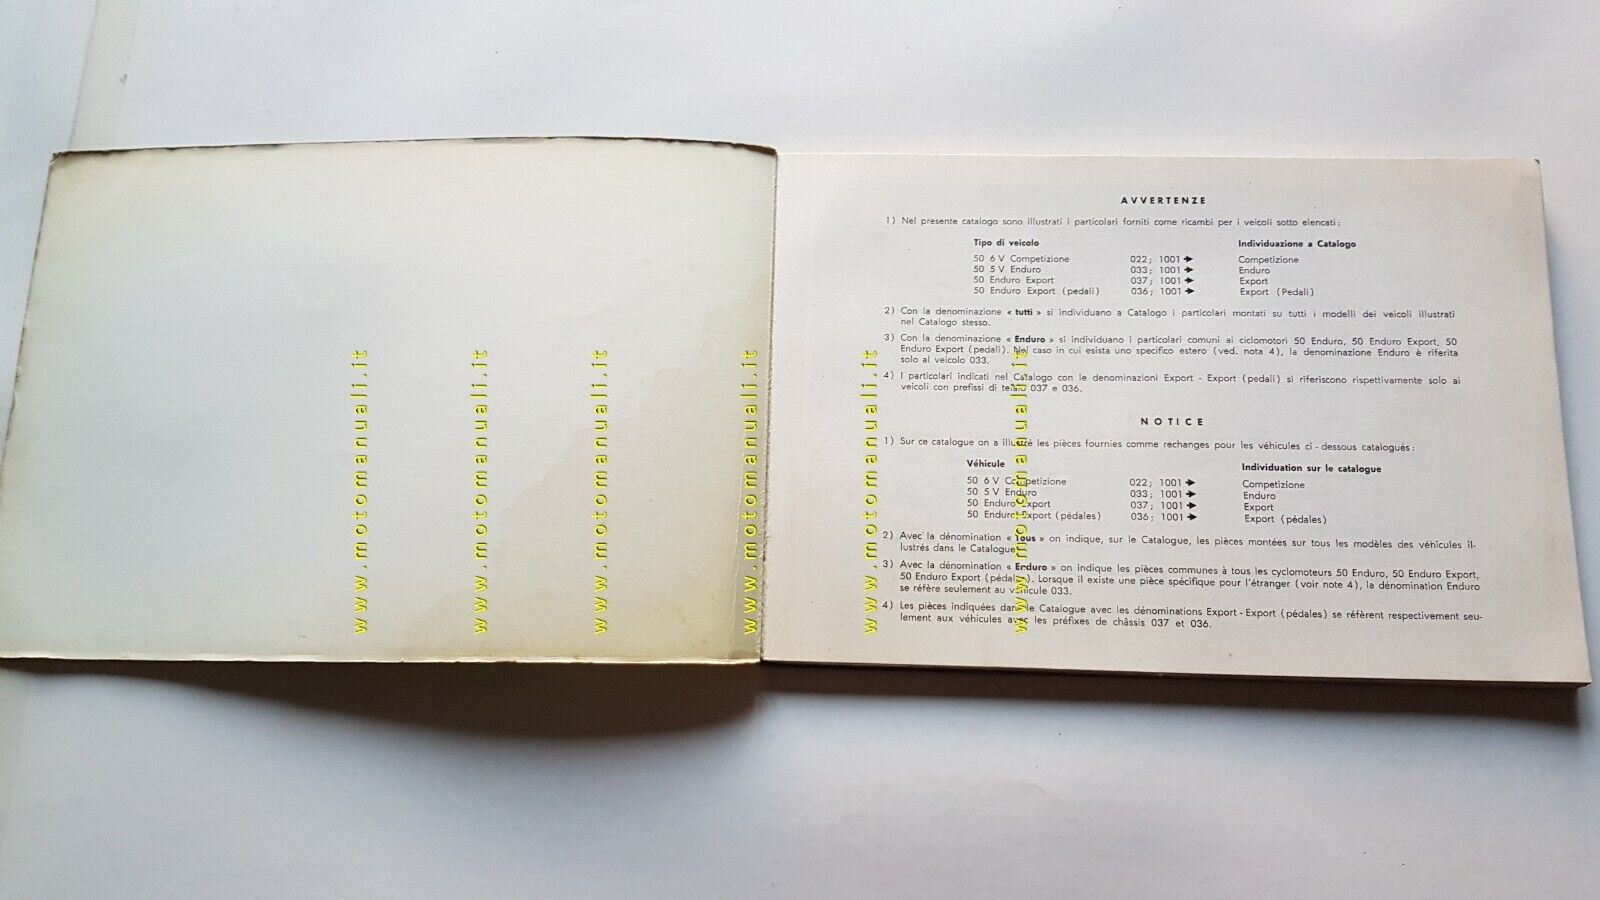 AVVERTENZE
1) Nel presente catalogo sono illustrati i particolari forniti come ricambi per i veicoli sotto elencati:
Tipo di veicolo Individuazione a Catalogo
50 6 V Competizione 022; 1001 → Competizione
50 5 V Enduro 033; 1001 → Enduro
50 Enduro Export 037; 1001 → Export
50 Enduro Export (pedali) 036; 1001 → Export (Pedali)
2) Con la denominazione « tutti » si individuano a Catalogo i particolari montati su tutti i modelli dei veicoli illustrati
nel Catalogo stesso.
3) Con la denominazione « Enduro » si individuano i particolari comuni ai ciclomotori 50 Enduro, 50 Enduro Export, 50
Enduro Export (pedali). Nel caso in cui esista uno specifico estero (ved. nota 4), la denominazione Enduro è riferita
solo al veicolo 033.
4) I particolari indicati nel Catalogo con le denominazioni Export - Export (pedali) si riferiscono rispettivamente solo ai
veicoli con prefissi di telaio 037 e 036.
NOTICE
1) Sur ce catalogue on a illustré les pièces fournies comme rechanges pour les véhicules ci-dessous catalogués:
Véhicule Individuation sur le catalogue
50 6 V Competizione 022; 1001 → Competizione
50 5 V Enduro 033; 1001 → Enduro
50 Enduro Export 037; 1001 → Export
50 Enduro Export (pédales) 036; 1001 → Export (pédales)
2) Avec la dénomination « Tous » on indique, sur le Catalogue, les pièces montées sur tous les modèles des véhicules il-
lustrés dans le Catalogue.
3) Avec la dénomination « Enduro » on indique les pièces communes à tous les cyclomoteurs 50 Enduro, 50 Enduro Export,
50 Enduro Export (pédales). Lorsque il existe une pièce spécifique pour l'étranger (voir note 4), la dénomination Enduro
se réfère seulement au véhicule 033.
4) Les pièces indiquées dans le Catalogue avec les dénominations Export-Export (pédales) se réfèrent respectivement seu-
lement aux véhicules avec les préfixes de châssis 037 et 036.
www.motomanuali.it
www.motomanuali.it
www.motomanuali.it
www.motomanuali.it
www.motomanuali.it
www.motomanuali.it